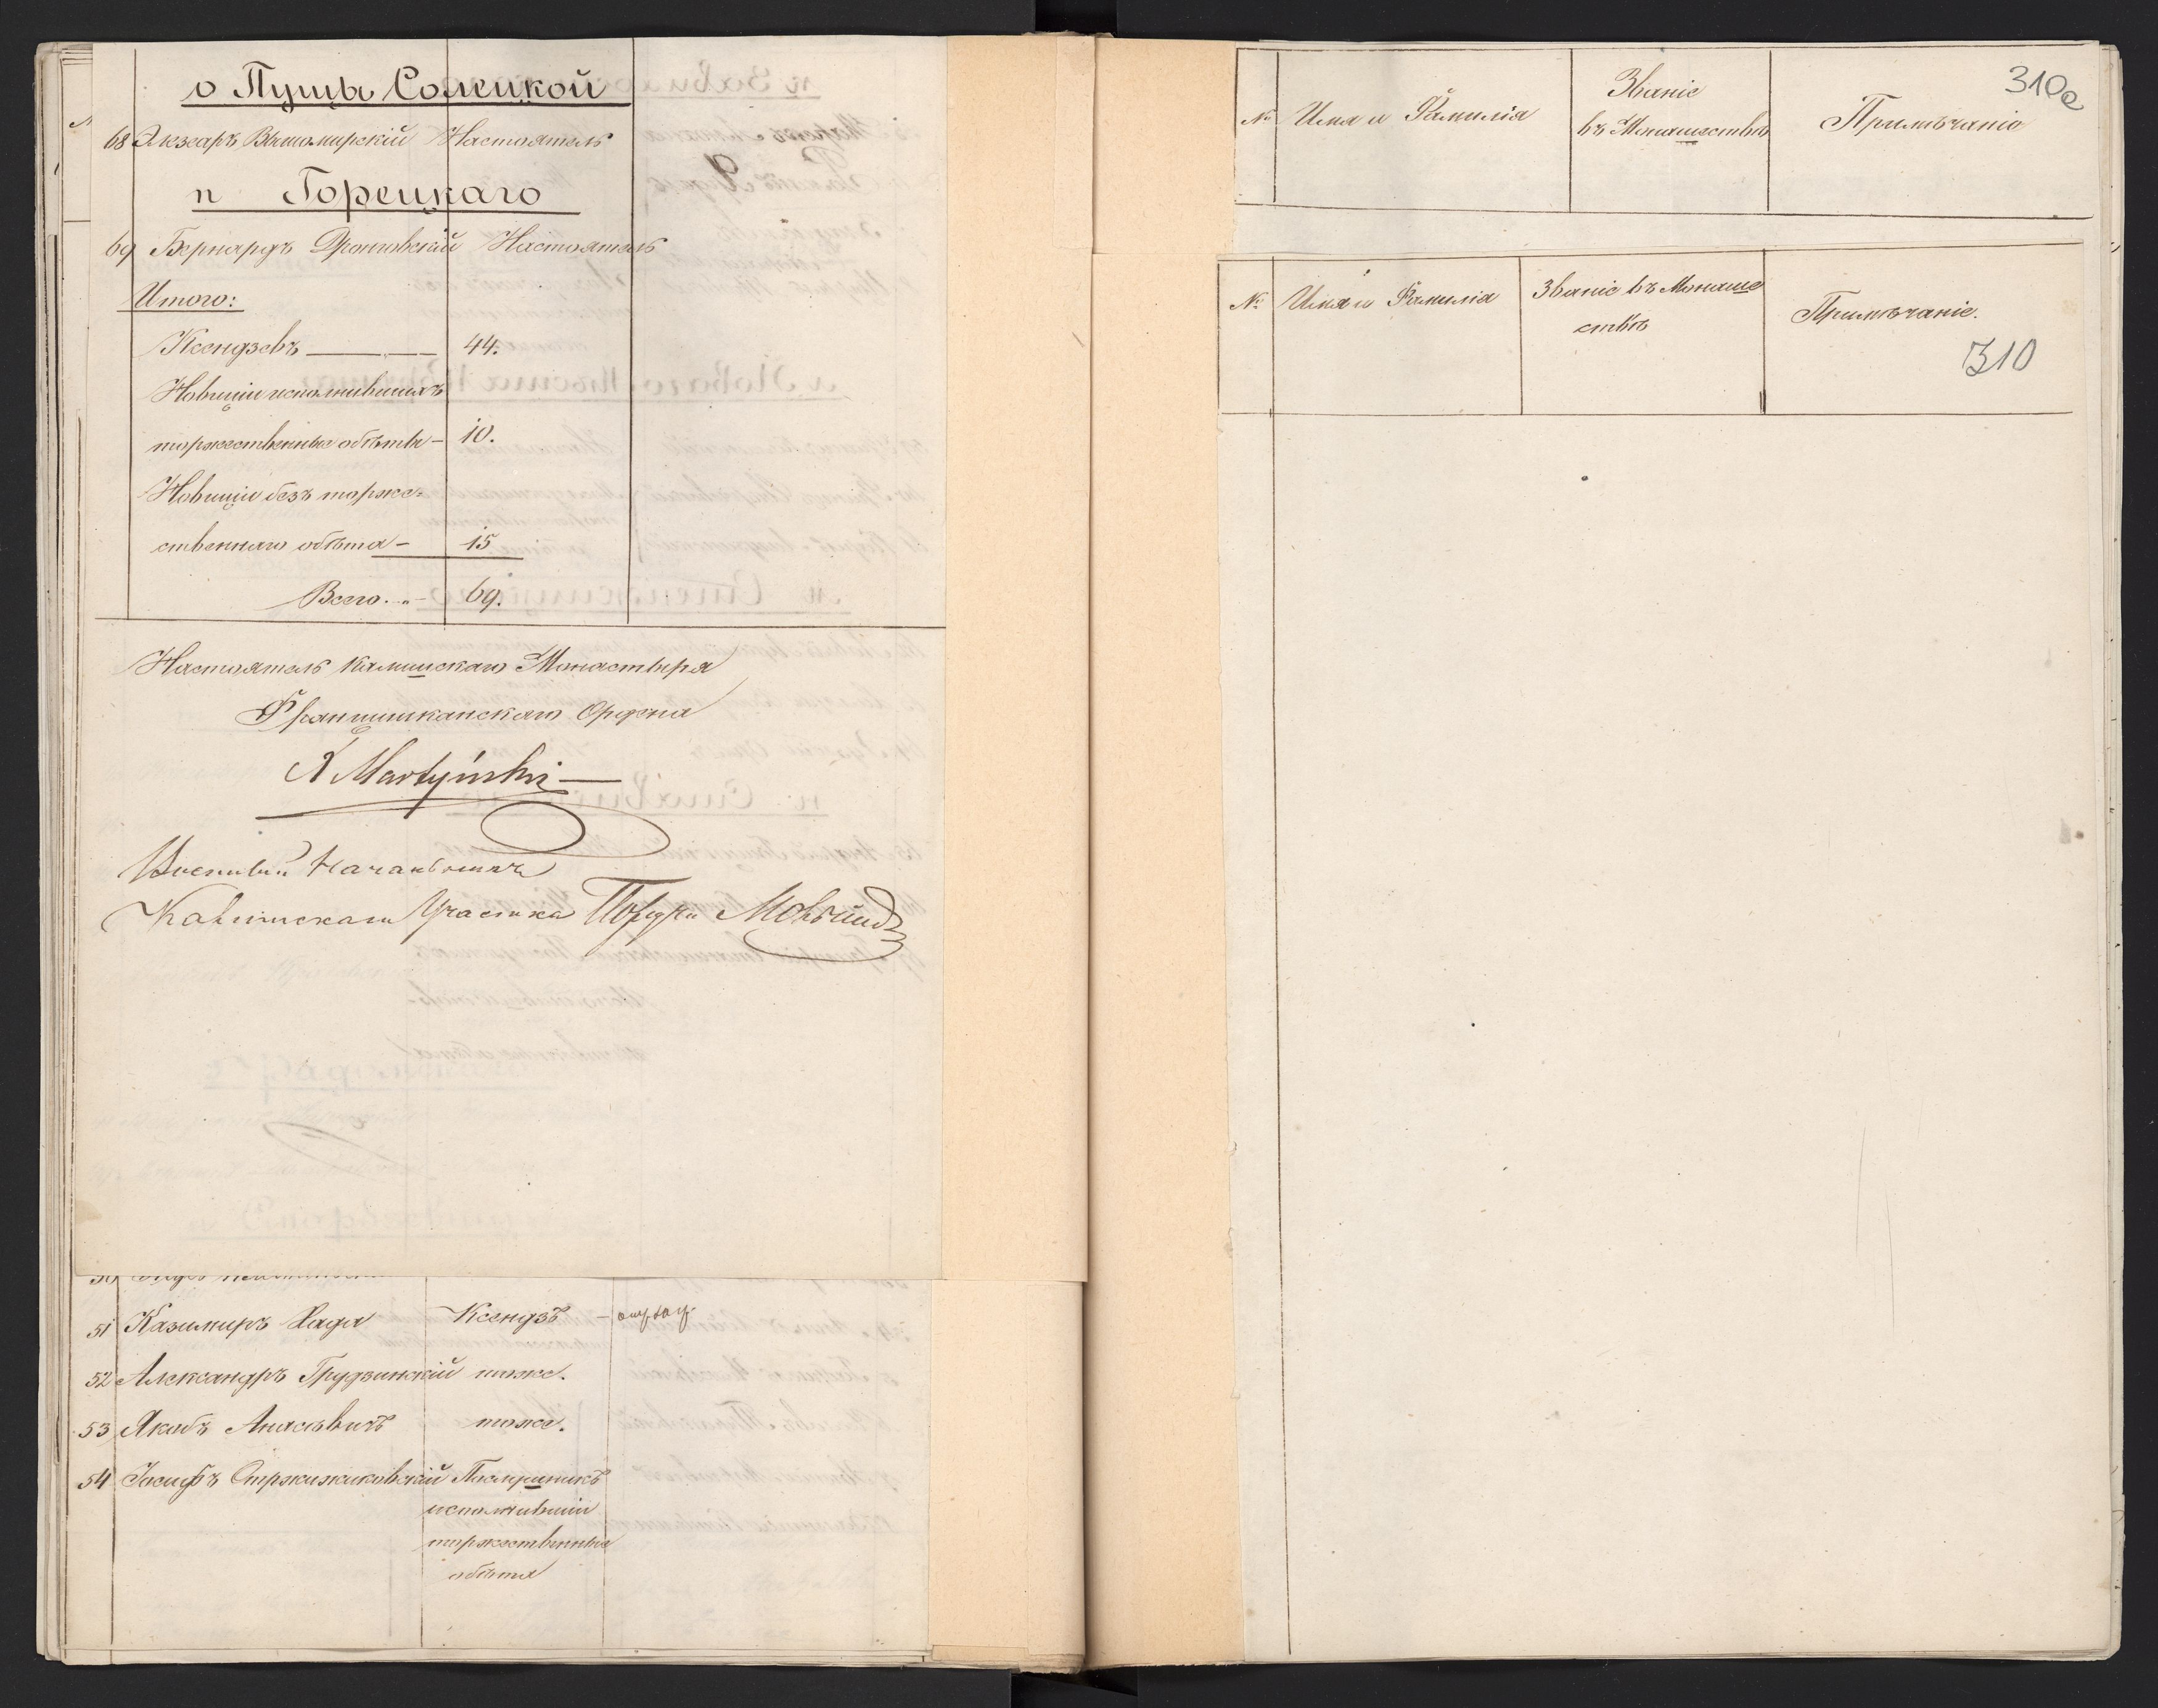 о Пущы Солецкой
68 Элзеаръ Витомирскій Настоятель
п Горецкаго
69 Бернардъ Дроновскій Настоятель
Итого:
Ксендзовъ — 44.
Новиціи исполнившихъ
торжественные обѣты — 10.
Новиціи безъ торже-
ственнаго обѣта — 15
Всего.. — 69.
Настоятель Калишскаго Монастыря
Францишканскаго Ордена
X Martyński
Военный Начальникъ
Калишскаго Участка
51 Казимиръ Хада Ксендзъ —
52 Александръ Грудзинскій тоже.
53 Якобъ тоже.
54 Іосифъ Стржижиковскій Послушникъ
исполнившій
торжественные
обѣты
310a
№ Имя и Фамилія Званіе
въ Монашествѣ Примѣчаніе
№ Имя и Фамилія Званіе въ Монаше
ствѣ Примѣчаніе.
310